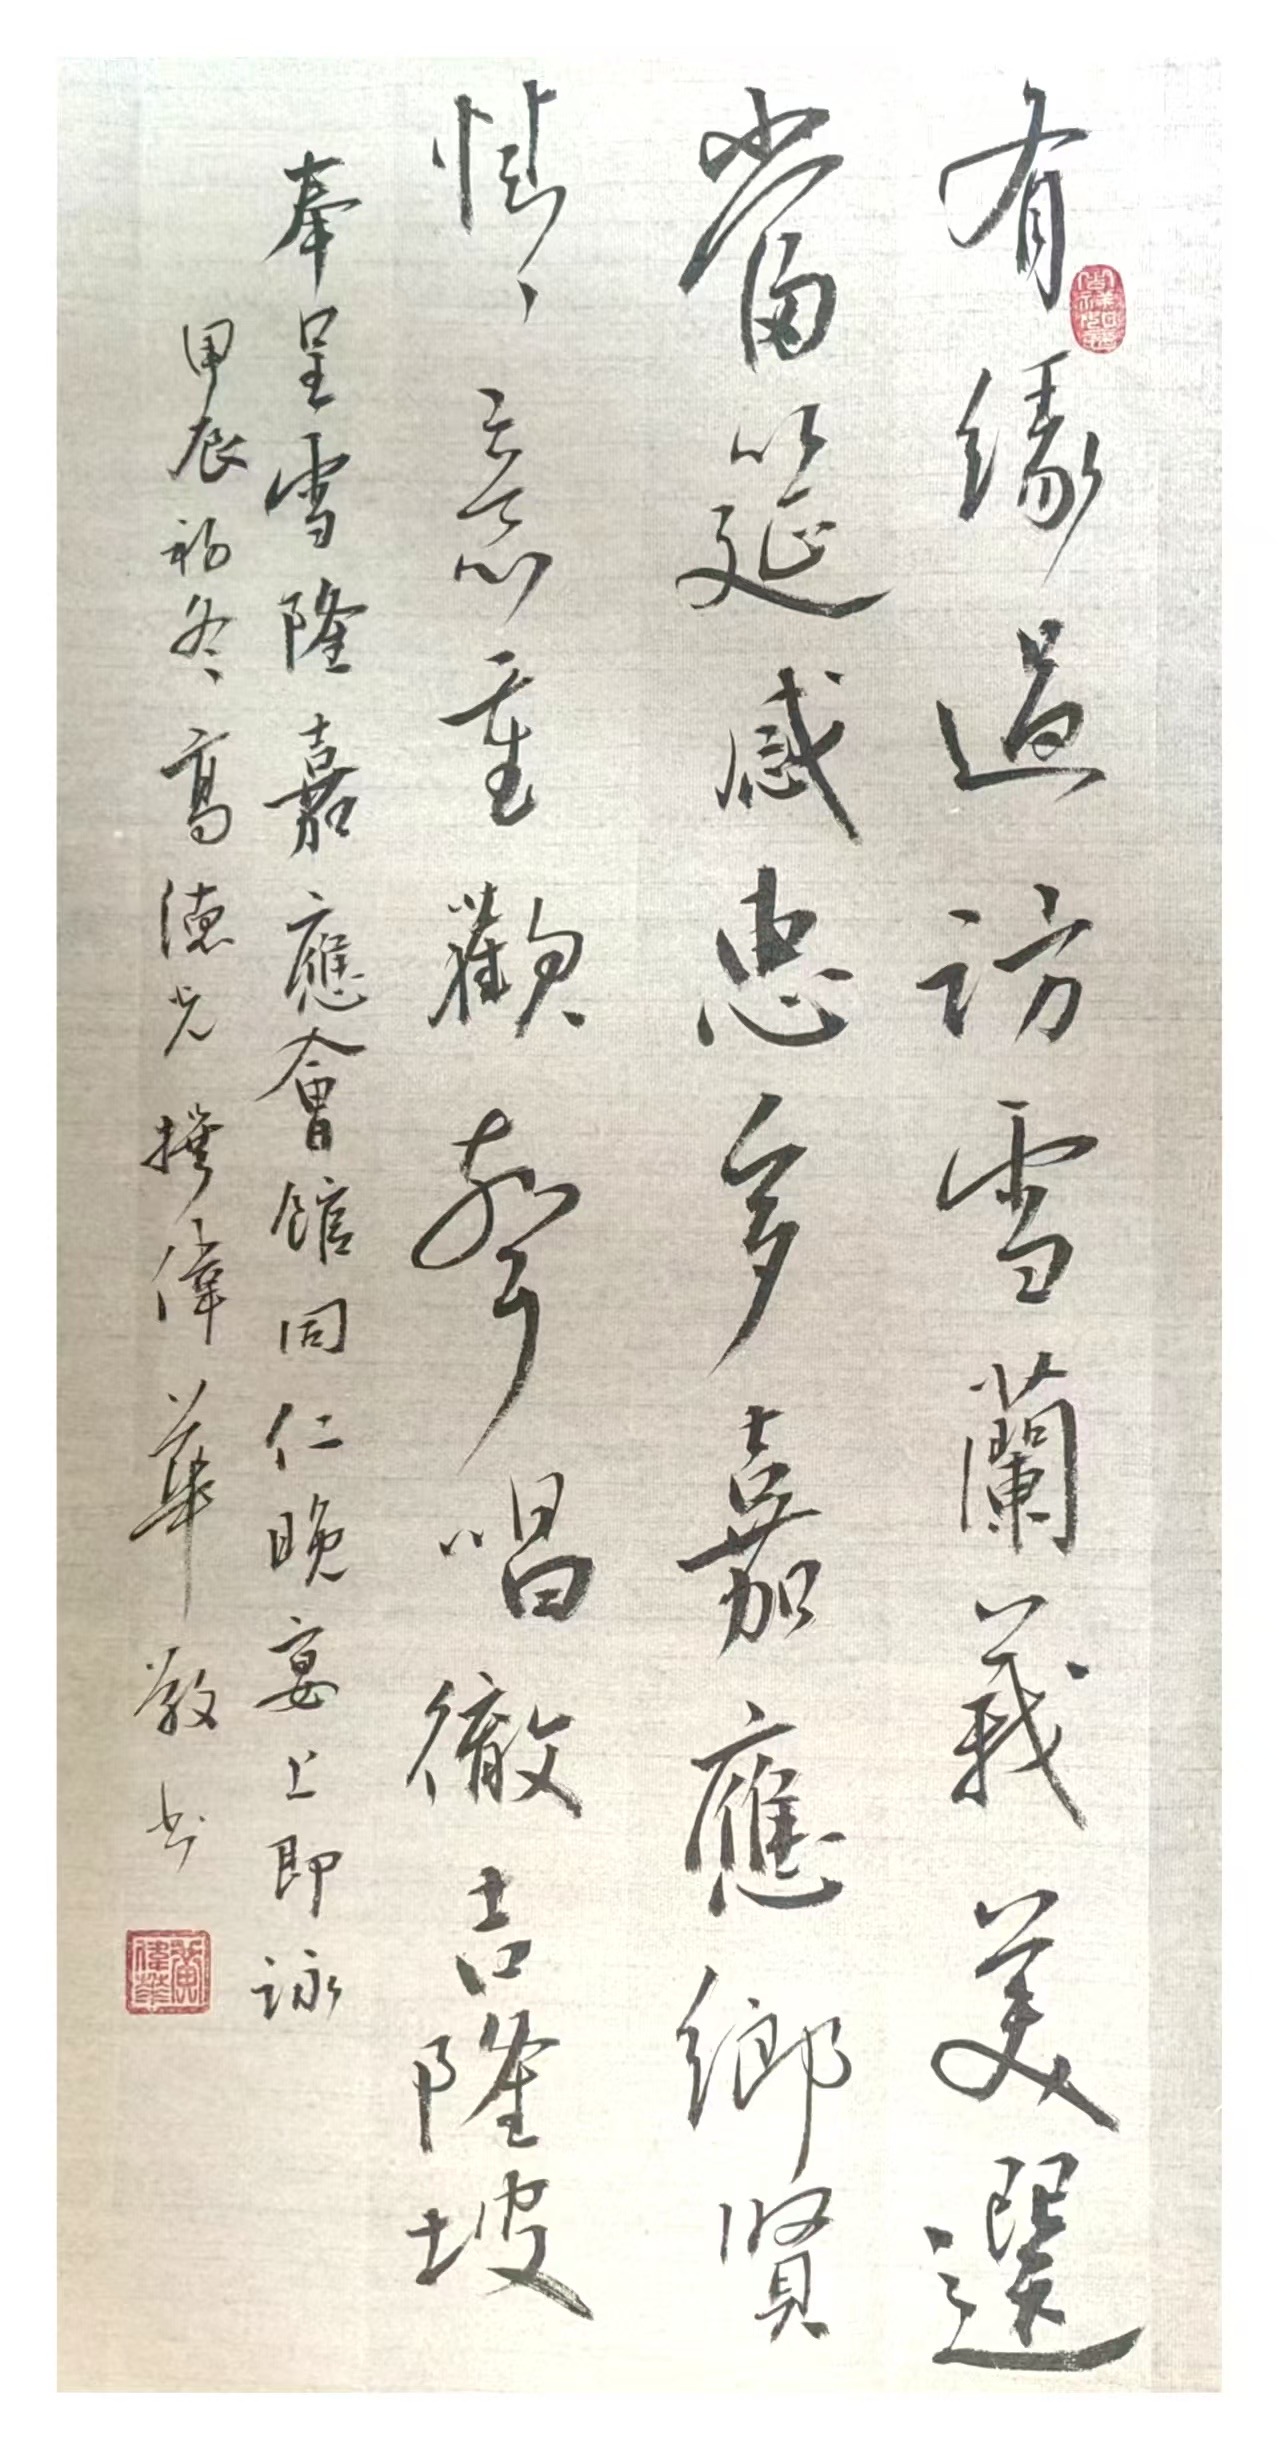 有緣過訪雪蘭莪美選
當筵感惠多嘉應鄉賢
情意重歡聲唱徹吉隆坡
奉呈雪隆嘉應會館同仁晚宴上即詠
甲辰初冬高德光撰偉華敬书
黃偉華